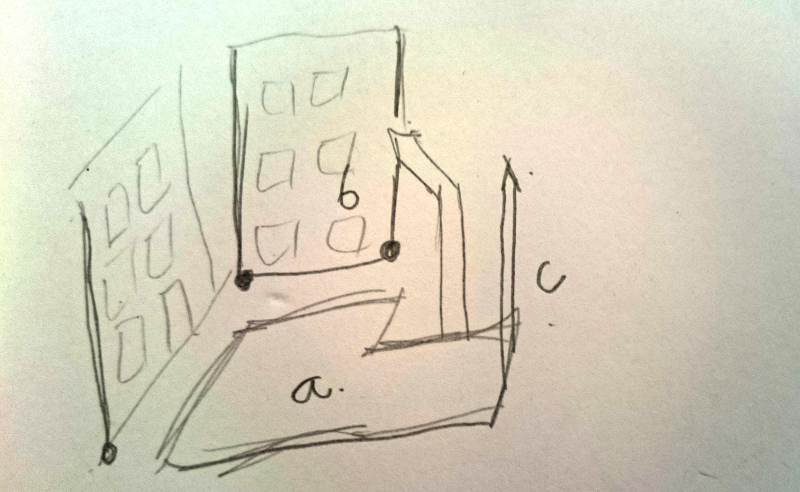 b
c
a.